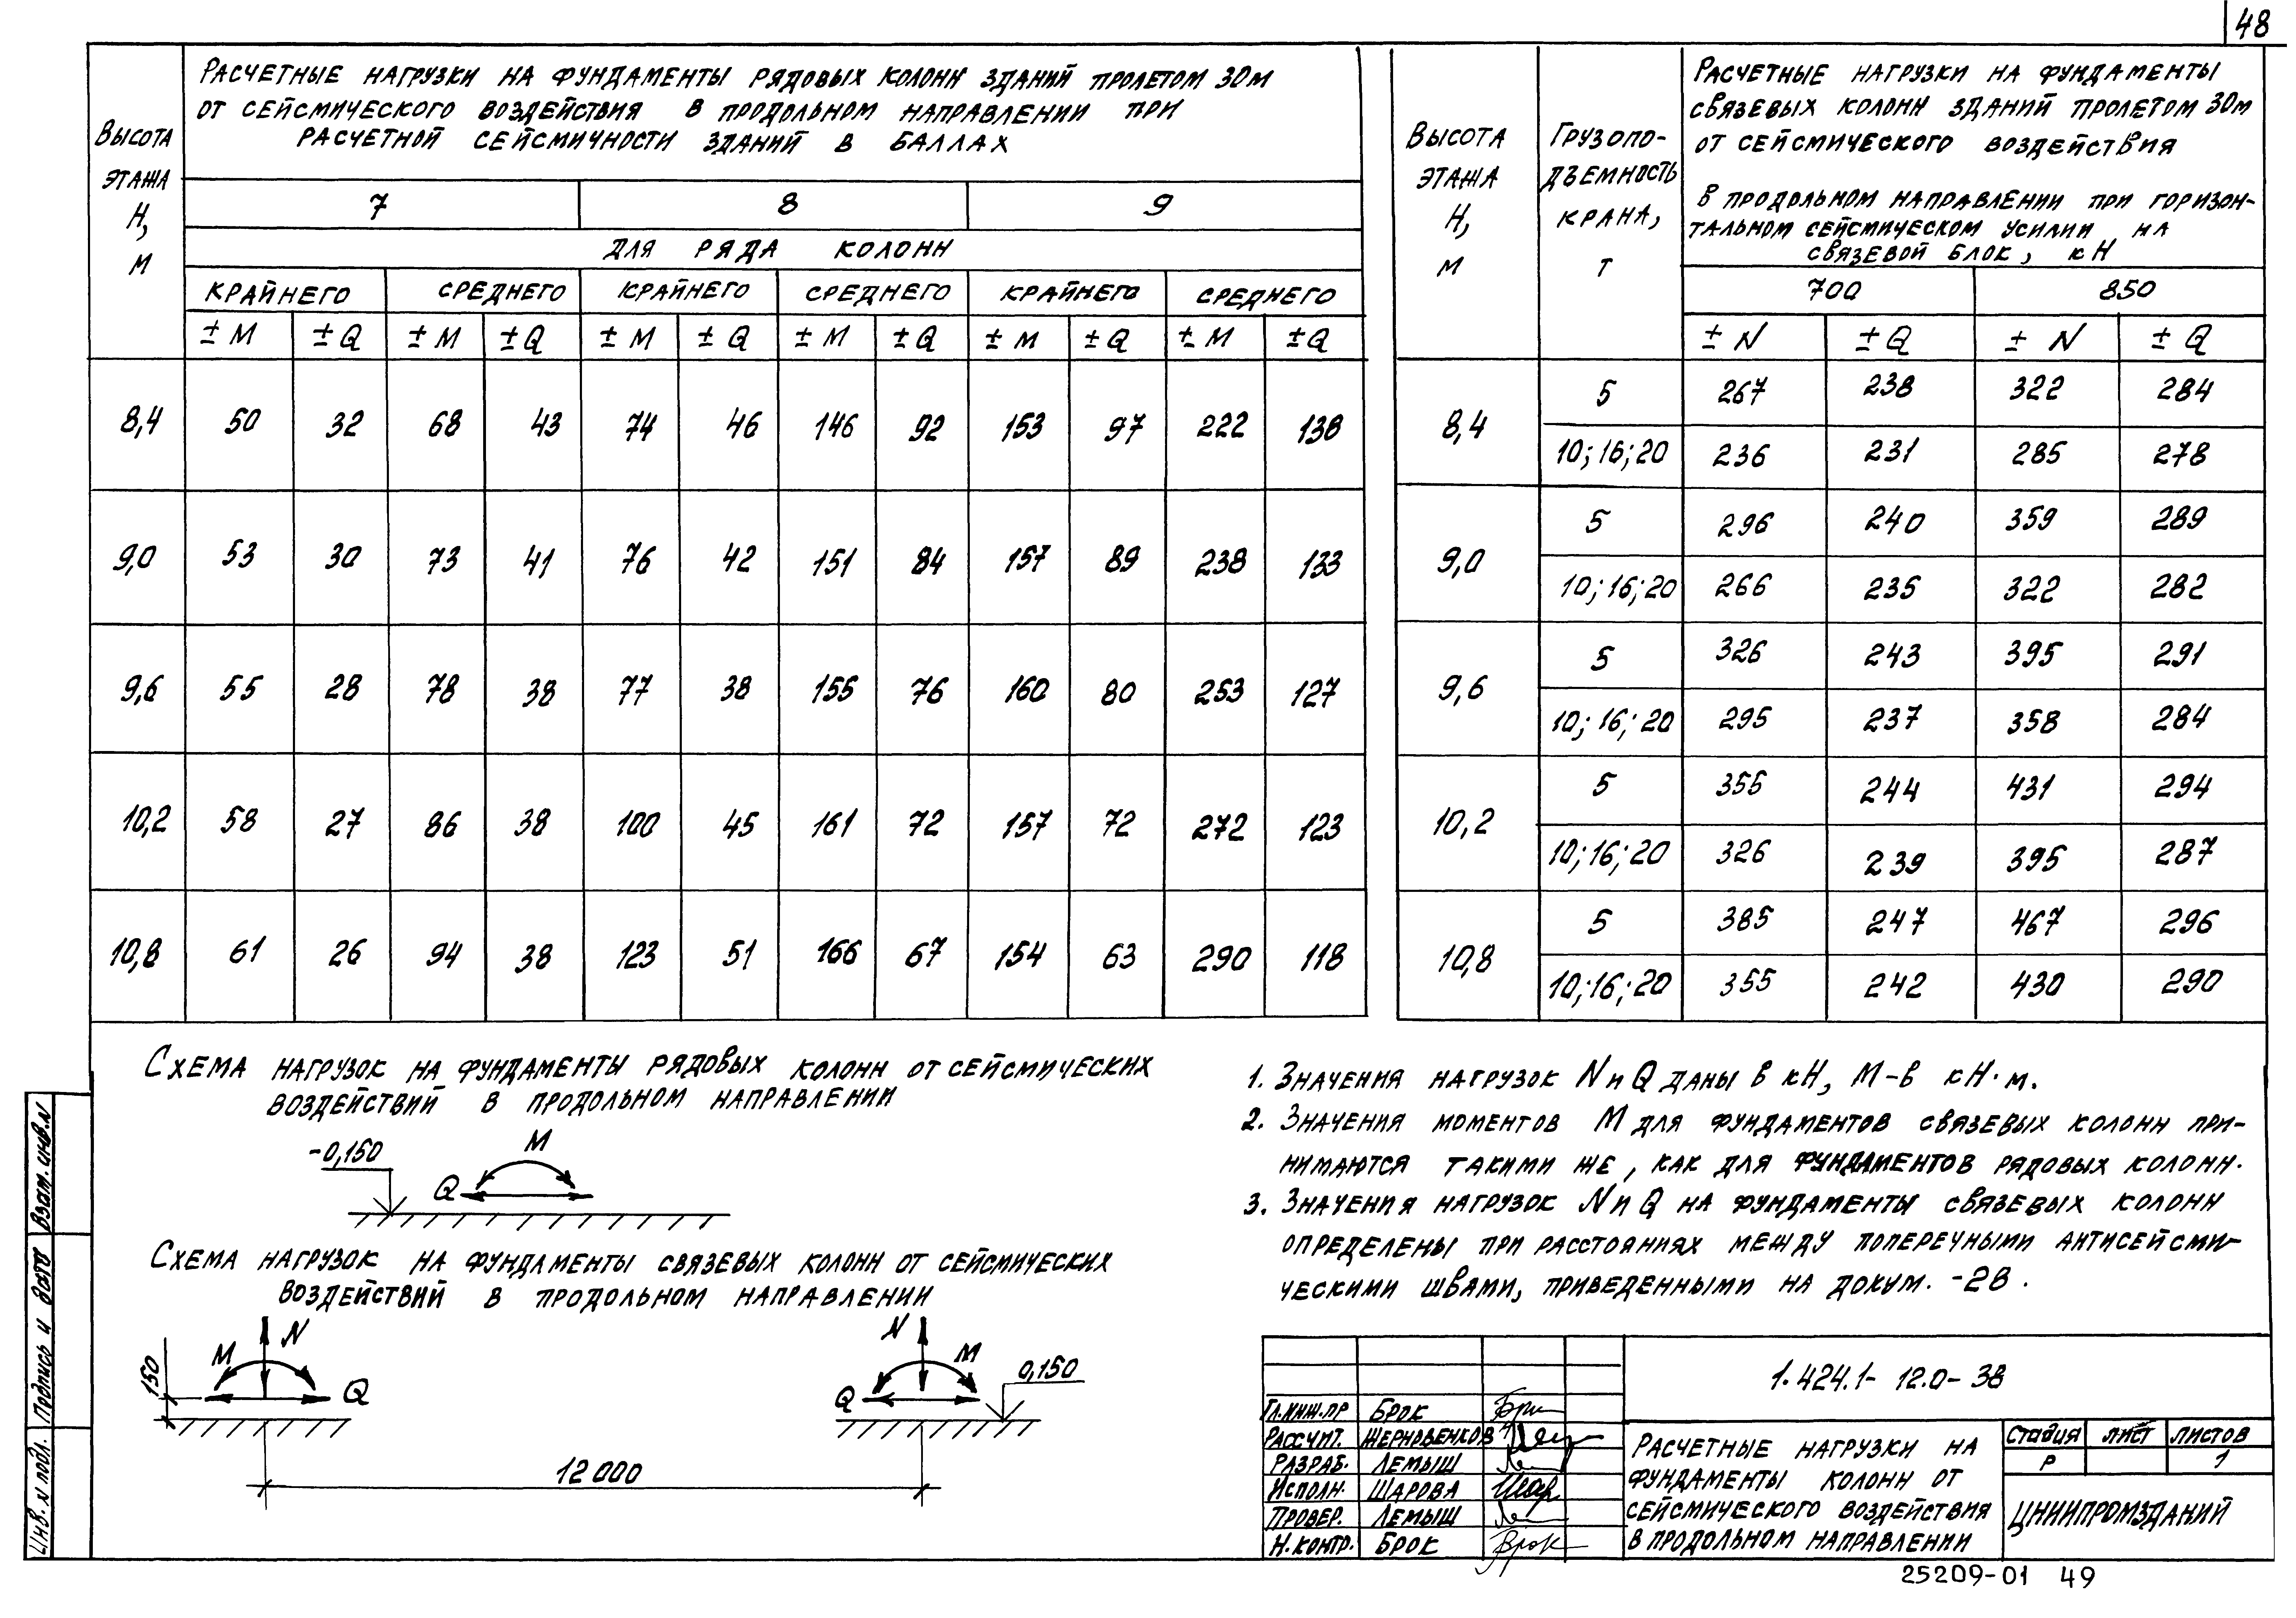 48
Высота
этажа
Н,
м
Расчетные нагрузки на фундаменты рядовых колонн зданий пролетом 30м
от сейсмического воздействия в продольном направлении при
расчетной сейсмичности зданий в баллах
7 8 9
для ряда колонн
крайнего среднего крайнего среднего крайнего среднего
± М ± Q ± М ± Q ± М ± Q ± М ± Q ± М ± Q ± М ± Q
8,4 50 32 68 43 74 46 146 92 153 97 222 138
9,0 53 30 73 41 76 42 151 84 157 89 238 133
9,6 55 28 78 38 77 38 155 76 160 80 253 127
10,2 58 27 86 38 100 45 161 72 157 72 272 123
10,8 61 26 94 38 123 51 166 67 154 63 290 118
Высота
этажа
Н,
м
Грузопо-
дъемность
крана,
т
Расчетные нагрузки на фундаменты
связевых колонн зданий пролетом 30м
от сейсмического воздействия
в продольном направлении при горизон-
тальном сейсмическом усилии на
связевой блок, кН
700 850
± N ± Q ± N ± Q
8,4 5 267 238 322 284
10; 16; 20 236 231 285 278
9,0 5 296 240 359 289
10; 16; 20 266 235 322 282
9,6 5 326 243 395 291
10; 16; 20 295 237 358 284
10,2 5 355 244 431 294
10; 16; 20 326 239 395 287
10,8 5 385 247 467 296
10; 16; 20 355 242 430 290
Схема нагрузок на фундаменты рядовых колонн от сейсмических
воздействий в продольном направлении
-0,150
М
Q
Схема нагрузок на фундаменты связевых колонн от сейсмических
воздействий в продольном направлении
150
М
N
Q
N
М
Q
0,150
12 000
1. Значения нагрузок N и Q даны в кН, М-в кН·м.
2. Значения моментов М для фундаментов связевых колонн при-
нимаются такими же, как для фундаментов рядовых колонн.
3. Значения нагрузок N и Q на фундаменты связевых колонн
определены при расстояниях между поперечными антисейсми-
ческими швами, приведенными на докум. -28.
Гл.инж.пр Брок
Рассчит. Жерновенков
Разраб. Лемыш
Исполн. Шарова
Провер. Лемыш
Н.контр. Брок
1.424.1-12.0-38
Расчетные нагрузки на
фундаменты колонн от
сейсмического воздействия
в продольном направлении
Стадия лист листов
Р 1
ЦНИИПРОМЗДАНИЙ
25209-01 49
Инв. N подл. Подпись и дата Взам. инв. N